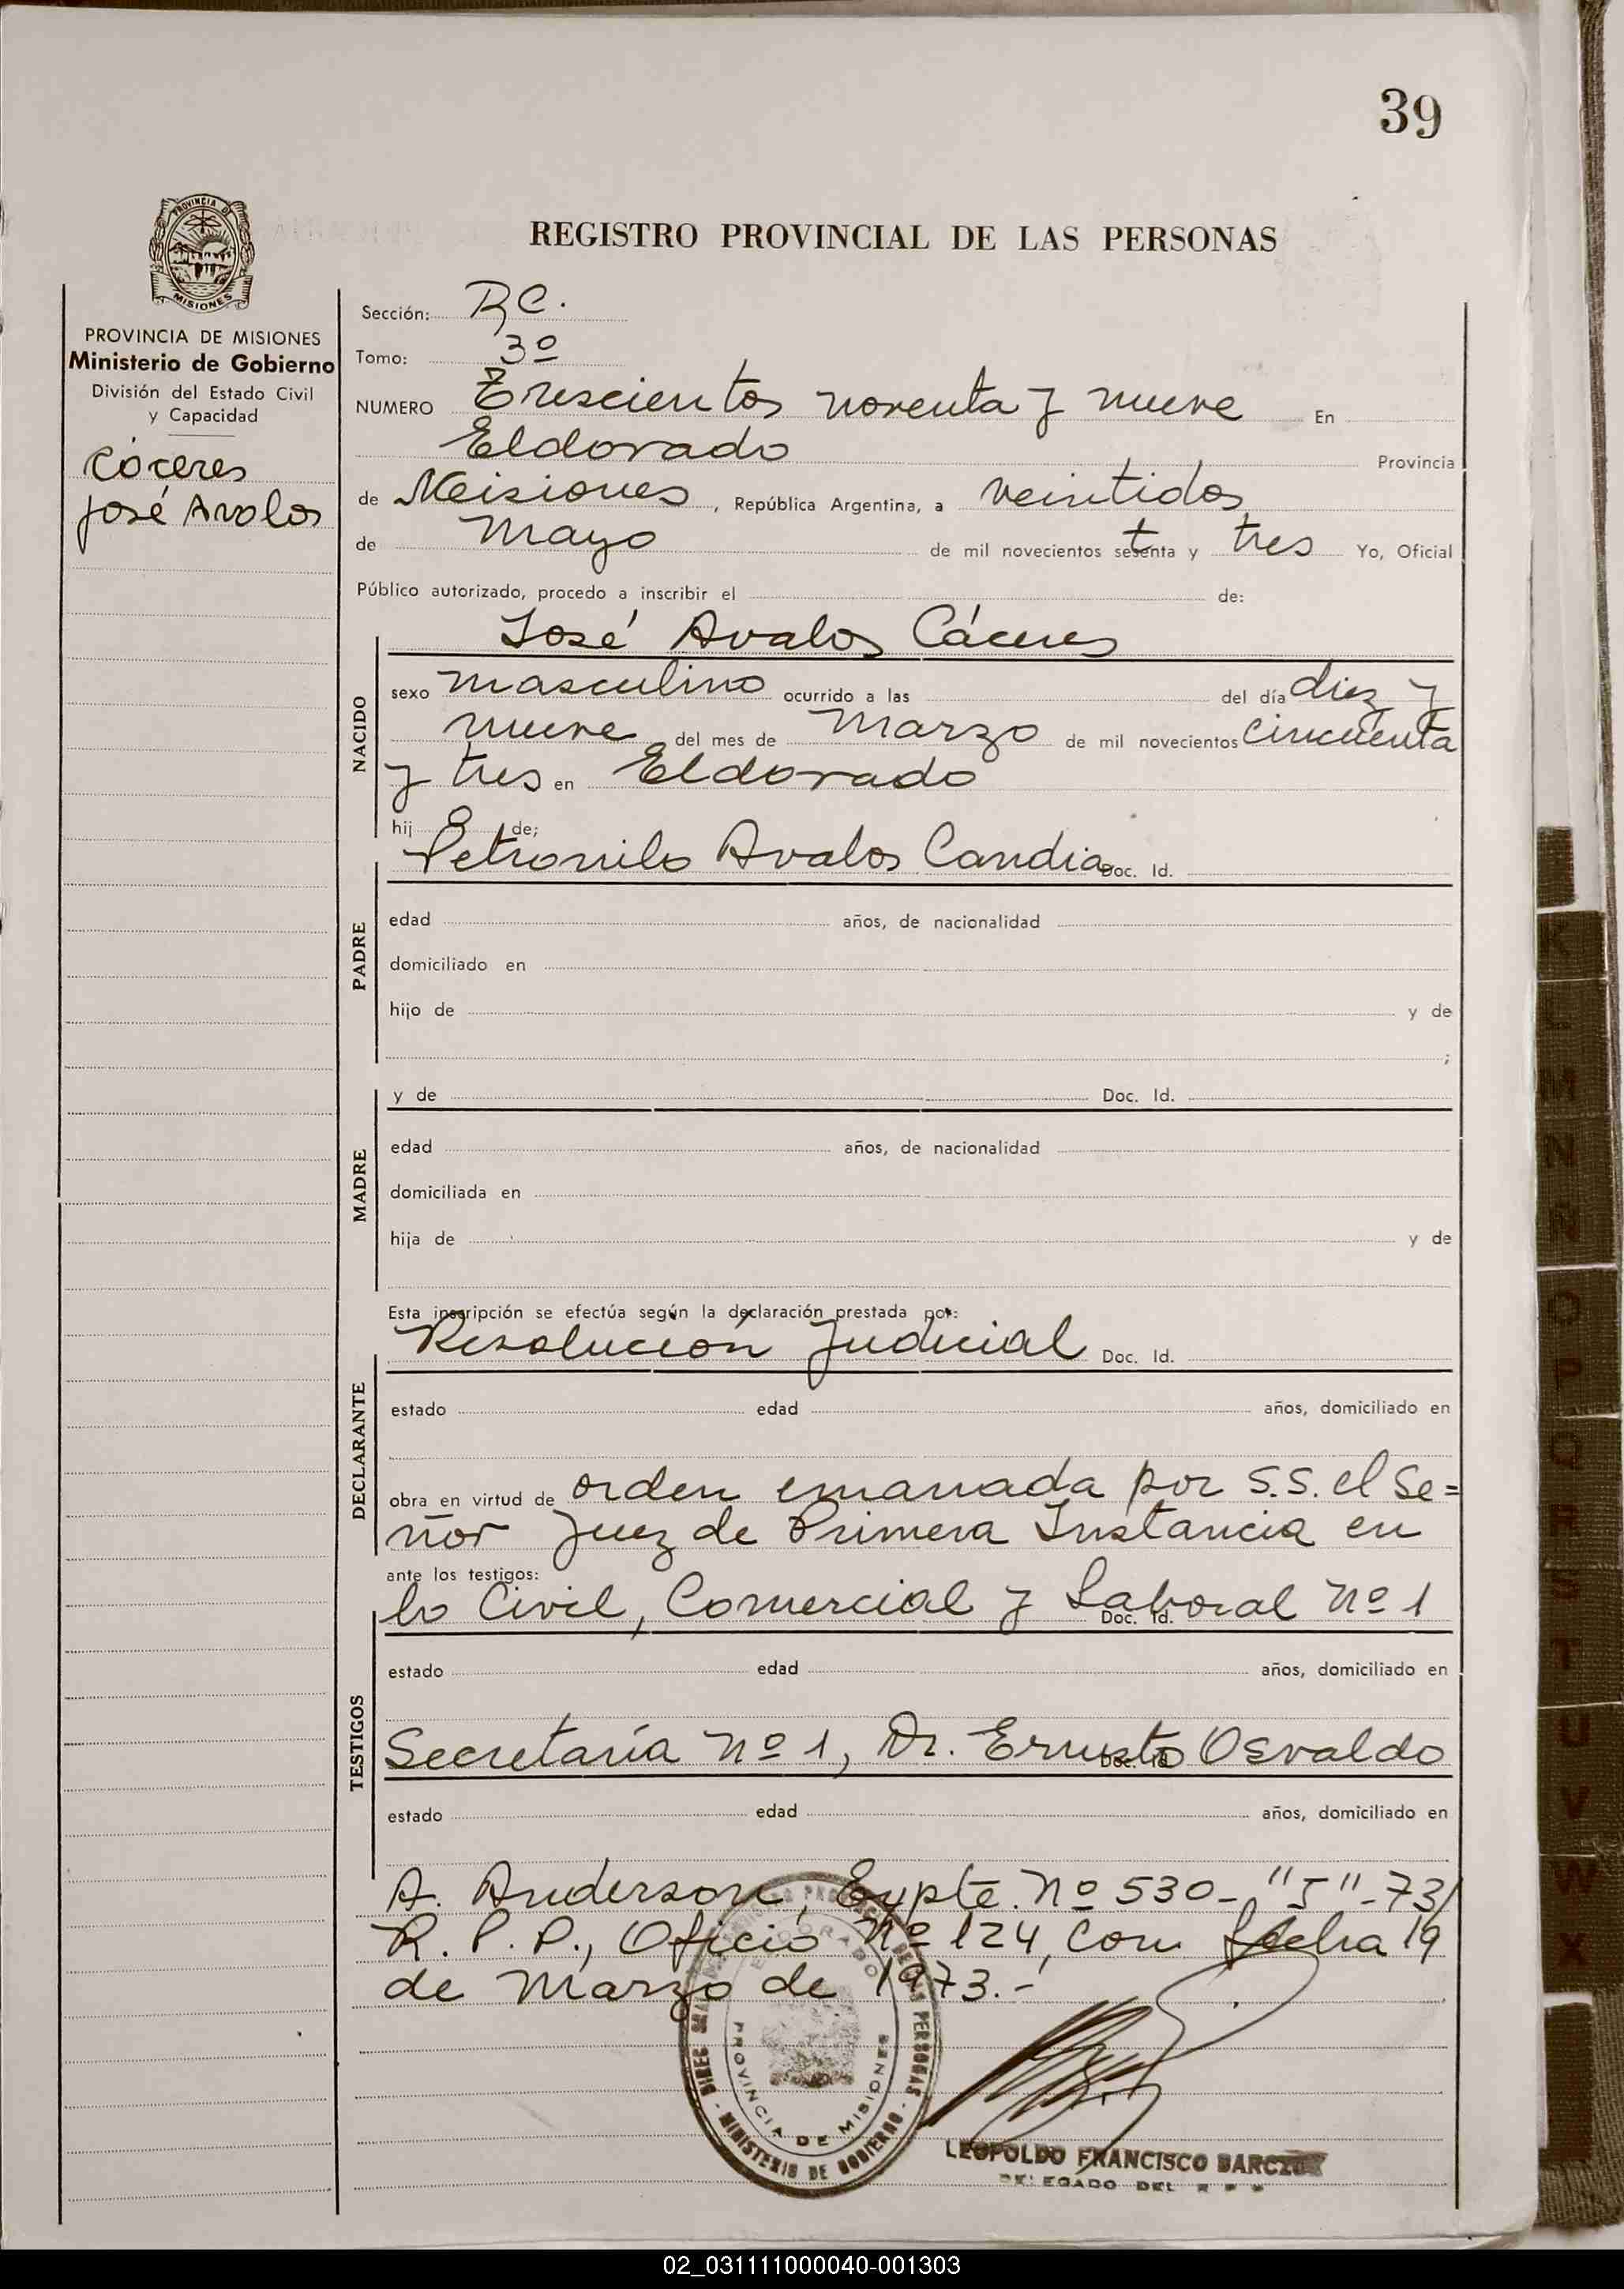 39
PROVINCIA DE
MISIONES
PROVINCIA DE MISIONES
Ministerio de Gobierno
División del Estado Civil
y Capacidad
Cáceres
José Avalos
REGISTRO PROVINCIAL DE LAS PERSONAS
Sección: RC.
Tomo: 3º
NUMERO Trescientos noventa y nueve En
Eldorado Provincia
de Misiones, República Argentina, a veintidos
de Mayo de mil novecientos setenta y tres Yo, Oficial
Público autorizado, procedo a inscribir el de:
José Avalos Cáceres
NACIDO
sexo masculino ocurrido a las del día diez y
nueve del mes de Marzo de mil novecientos cincuenta
y tres en Eldorado
hijo de;
Petronilo Avalos Candia Doc. Id.
PADRE
edad años, de nacionalidad
domiciliado en
hijo de y de
;
MADRE
y de Doc. Id.
edad años, de nacionalidad
domiciliada en
hija de y de
Esta inscripción se efectúa según la declaración prestada por:
Resolución Judicial Doc. Id.
DECLARANTE
estado edad años, domiciliado en
obra en virtud de orden emanada por S.S. el Se=
ñor Juez de Primera Instancia en
ante los testigos:
lo Civil, Comercial y Laboral nº 1
Doc. Id.
TESTIGOS
estado edad años, domiciliado en
Secretaría nº 1, Dr. Ernesto Osvaldo
Doc. Id.
estado edad años, domiciliado en
A. Anderson, Expte. nº 530-"J"-73/
R.P.P., Oficio nº 124, con fecha 19
de Marzo de 1973.-
ELDORADO
PROVINCIA DE MISIONES
MINISTERIO DE GOBIERNO
LEOPOLDO FRANCISCO
DELEGADO DEL
K
L
M
N
Ñ
O
P
Q
R
S
T
U
V
W
X
02_031111000040-001303